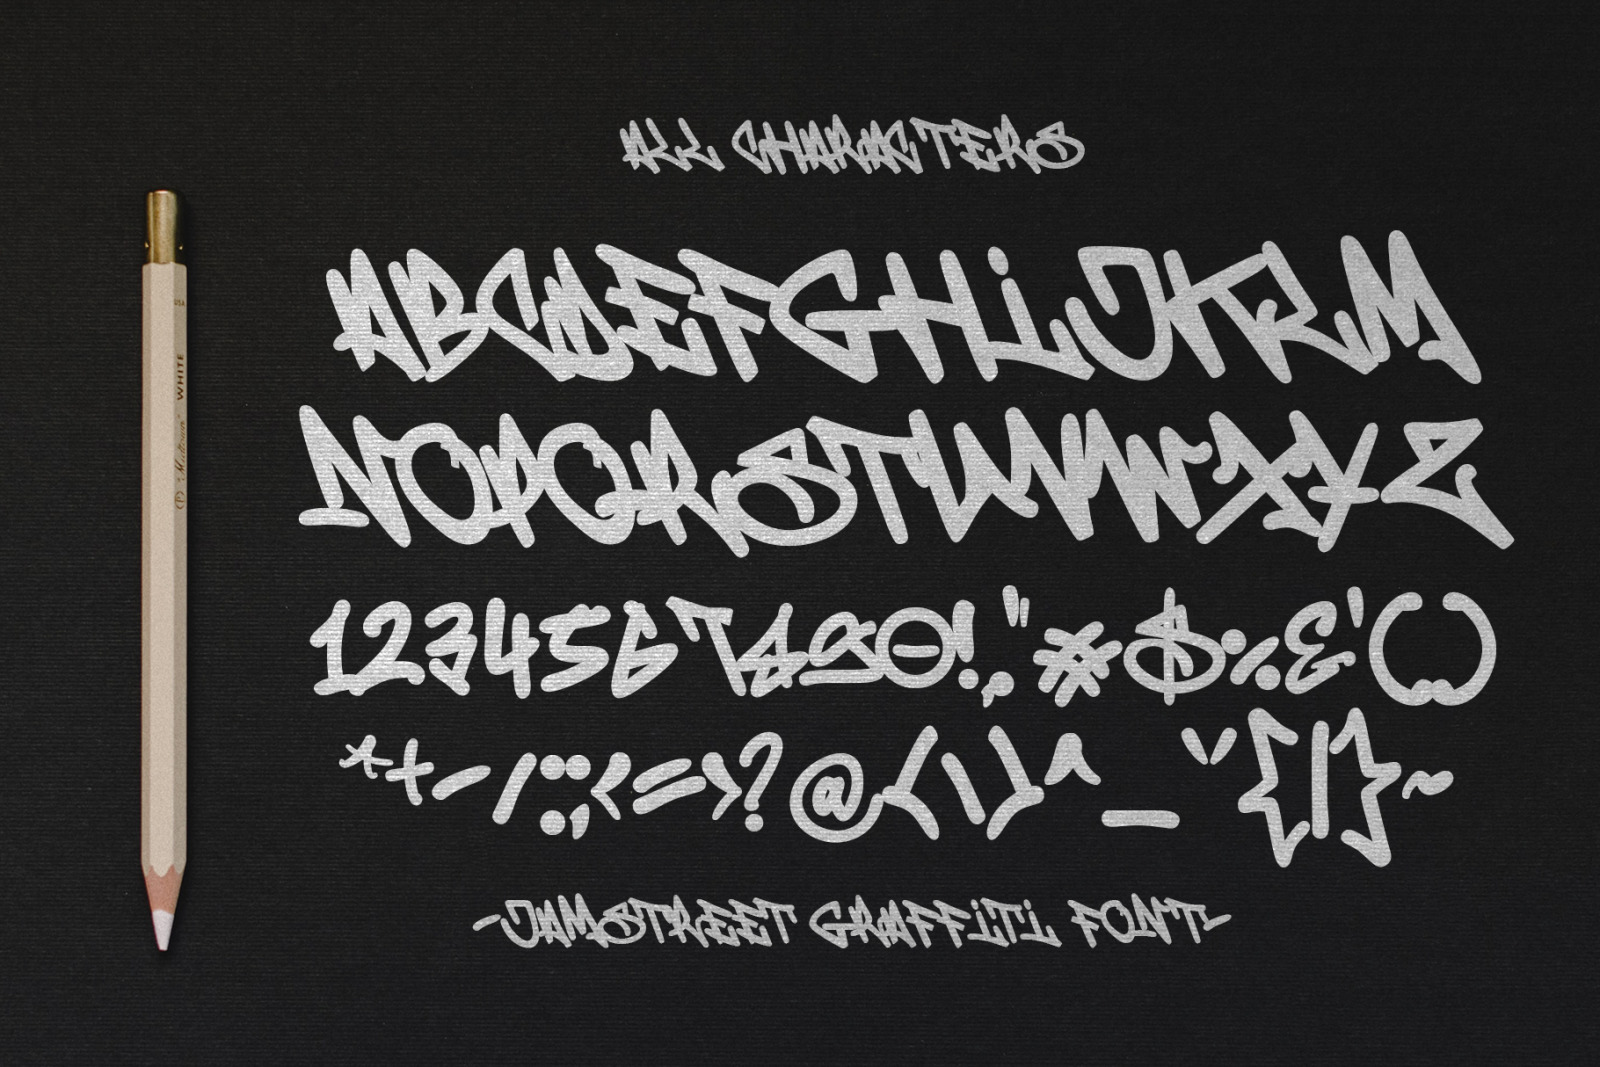 ALL CHARACTERS
ABCDEFGHiJKLM
NOPQRSTUVWXYZ
1234567890!.,"#$%&'()
*+-/:;<=>?@[\]^_`{|}~
-JAMSTREET GRAFFiTi FONT-
USA
WHITE